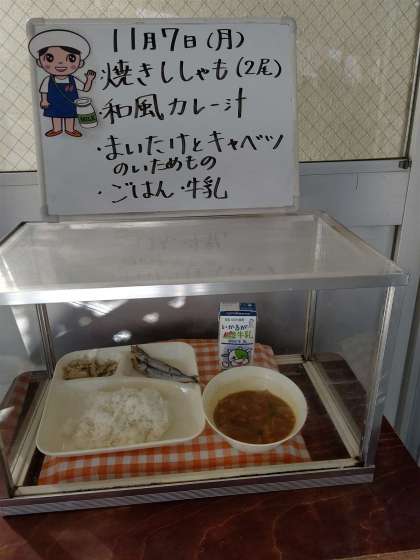 11月7日(月)
・焼きししゃも(2尾)
・和風カレー汁
・まいたけとキャベツ
のいためもの
・ごはん・牛乳
MILK
いかるが
牛乳